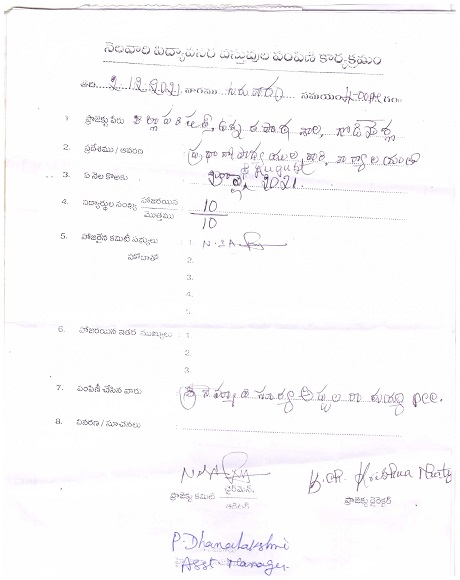 నెలవారి విద్యావసర వస్తువుల పంపిణి కార్యక్రమం
తేది 2.12.2021 వారము గురువారం సమయం 4-00PM గం
1 ప్రాజెక్టు పేరు జిల్లా పరిషత్ ఉన్నత పాఠశాల,
2. ప్రదేశము / ఆవరణ ప్రధానోపాధ్యాయుల వారి కార్యాలయం
3. ఏ నెల కొఱకు August 2021.
4. విద్యార్థుల సంఖ్య హాజరయిన 10
మొత్తము 10
5. హాజరైన కమిటీ సభ్యులు : 1.
హోదాతో 2.
3.
4.
5.
6. హాజరయిన ఇతర ముఖ్యులు : 1.
2.
3.
7. పంపిణీ చేసిన వారు శ్రీ సూర్య రామయ్య PCC.
8. వివరణ / సూచనలు
ప్రాజెక్టు కమిటీ ఛైర్మెన్
B.Ch. Krishna Murty
ప్రాజెక్టు డైరెక్టర్
P. Dhanalakshmi
Asst. Manager.